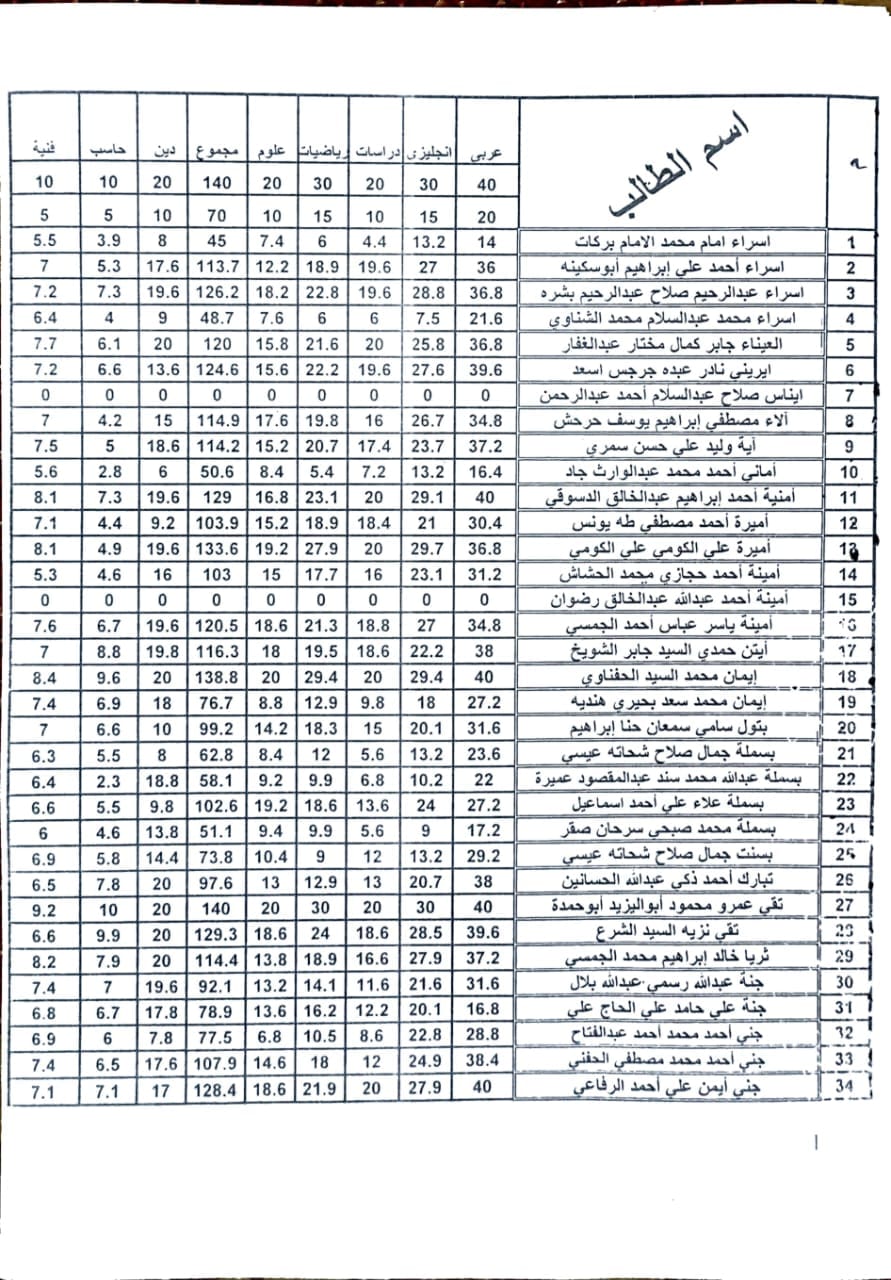 م اسم الطالب عربى انجليزى دراسات رياضيات علوم مجموع دين حاسب فنية
40 30 20 30 20 140 20 10 10
20 15 10 15 10 70 10 5 5
1 اسراء امام محمد الامام بركات 14 13.2 4.4 6 7.4 45 8 3.9 5.5
2 اسراء أحمد علي إبراهيم أبوسكينه 36 27 19.6 18.9 12.2 113.7 17.6 5.3 7
3 اسراء عبدالرحيم صلاح عبدالرحيم بشره 36.8 28.8 19.6 22.8 18.2 126.2 19.6 7.3 7.2
4 اسراء محمد عبدالسلام محمد الشناوي 21.6 7.5 6 6 7.6 48.7 9 4 6.4
5 العيناء جابر كمال مختار عبدالغفار 36.8 25.8 20 21.6 15.8 120 20 6.1 7.7
6 ايريني نادر عبده جرجس اسعد 39.6 27.6 19.6 22.2 15.6 124.6 13.6 6.6 7.2
7 ايناس صلاح عبدالسلام أحمد عبدالرحمن 0 0 0 0 0 0 0 0 0
8 آلاء مصطفي إبراهيم يوسف حرحش 34.8 26.7 16 19.8 17.6 114.9 15 4.2 7
9 آية وليد علي حسن سمري 37.2 23.7 17.4 20.7 15.2 114.2 18.6 5 7.5
10 أماني أحمد محمد عبدالوارث جاد 16.4 13.2 7.2 5.4 8.4 50.6 6 2.8 5.6
11 أمنية أحمد إبراهيم عبدالخالق الدسوقي 40 29.1 20 23.1 16.8 129 19.6 7.3 8.1
12 أميرة أحمد مصطفي طه يونس 30.4 21 18.4 18.9 15.2 103.9 9.2 4.4 7.1
13 أميرة علي الكومي علي الكومي 36.8 29.7 20 27.9 19.2 133.6 19.6 4.9 8.1
14 أمينة أحمد حجازي محمد الحشاش 31.2 23.1 16 17.7 15 103 16 4.6 5.3
15 أمينة أحمد عبدالله عبدالخالق رضوان 0 0 0 0 0 0 0 0 0
16 أمينة ياسر عباس أحمد الجمسي 34.8 27 18.8 21.3 18.6 120.5 19.6 6.7 7.6
17 أيتن حمدي السيد جابر الشويخ 38 22.2 18.6 19.5 18 116.3 19.8 8.8 7
18 إيمان محمد السيد الحفناوي 40 29.4 20 29.4 20 138.8 20 9.6 8.4
19 إيمان محمد سعد بحيري هنديه 27.2 18 9.8 12.9 8.8 76.7 18 6.9 7.4
20 بتول سامي سمعان حنا إبراهيم 31.6 20.1 15 18.3 14.2 99.2 10 6.6 7
21 بسملة جمال صلاح شحاته عيسي 23.6 13.2 5.6 12 8.4 62.8 8 5.5 6.3
22 بسملة عبدالله محمد سند عبدالمقصود عميرة 22 10.2 6.8 9.9 9.2 58.1 18.8 2.3 6.4
23 بسملة علاء علي أحمد اسماعيل 27.2 24 13.6 18.6 19.2 102.6 9.8 5.5 6.6
24 بسملة محمد صبحي سرحان صقر 17.2 9 5.6 9.9 9.4 51.1 13.8 4.6 6
25 بسنت جمال صلاح شحاته عيسي 29.2 13.2 12 9 10.4 73.8 14.4 5.8 6.9
26 تبارك أحمد ذكي عبدالله الحسانين 38 20.7 13 12.9 13 97.6 20 7.8 6.5
27 تقي عمرو محمود أبواليزيد أبوحمدة 40 30 20 30 20 140 20 10 9.2
28 تقي نزيه السيد الشرع 39.6 28.5 18.6 24 18.6 129.3 20 9.9 6.6
29 ثريا خالد إبراهيم محمد الجمسي 37.2 27.9 16.6 18.9 13.8 114.4 20 7.9 8.2
30 جنة عبدالله رسمي عبدالله بلال 31.6 21.6 11.6 14.1 13.2 92.1 19.6 7 7.4
31 جنة علي حامد علي الحاج علي 16.8 20.1 12.2 16.2 13.6 78.9 17.8 6.7 6.8
32 جني أحمد محمد أحمد عبدالفتاح 28.8 22.8 8.6 10.5 6.8 77.5 7.8 6 6.9
33 جني أحمد محمد مصطفي الحفني 38.4 24.9 12 18 14.6 107.9 17.6 6.5 7.4
34 جني أيمن علي أحمد الرفاعي 40 27.9 20 21.9 18.6 128.4 17 7.1 7.1
1